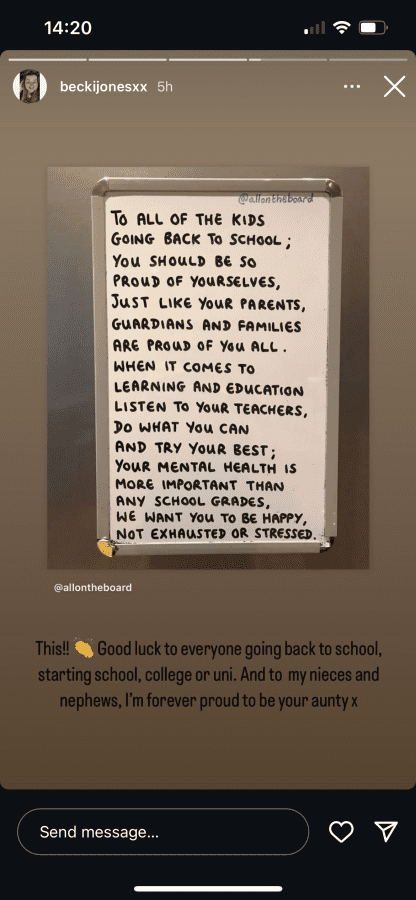 14:20
beckijonesxx 5h
@allontheboard
TO ALL OF THE KIDS
GOING BACK TO SCHOOL;
YOU SHOULD BE SO
PROUD OF YOURSELVES,
JUST LIKE YOUR PARENTS,
GUARDIANS AND FAMILIES
ARE PROUD OF YOU ALL.
WHEN IT COMES TO
LEARNING AND EDUCATION
LISTEN TO YOUR TEACHERS,
DO WHAT YOU CAN
AND TRY YOUR BEST;
YOUR MENTAL HEALTH IS
MORE IMPORTANT THAN
ANY SCHOOL GRADES,
WE WANT YOU TO BE HAPPY,
NOT EXHAUSTED OR STRESSED.
@allontheboard
This!! 👏 Good luck to everyone going back to school,
starting school, college or uni. And to my nieces and
nephews, I'm forever proud to be your aunty x
Send message...